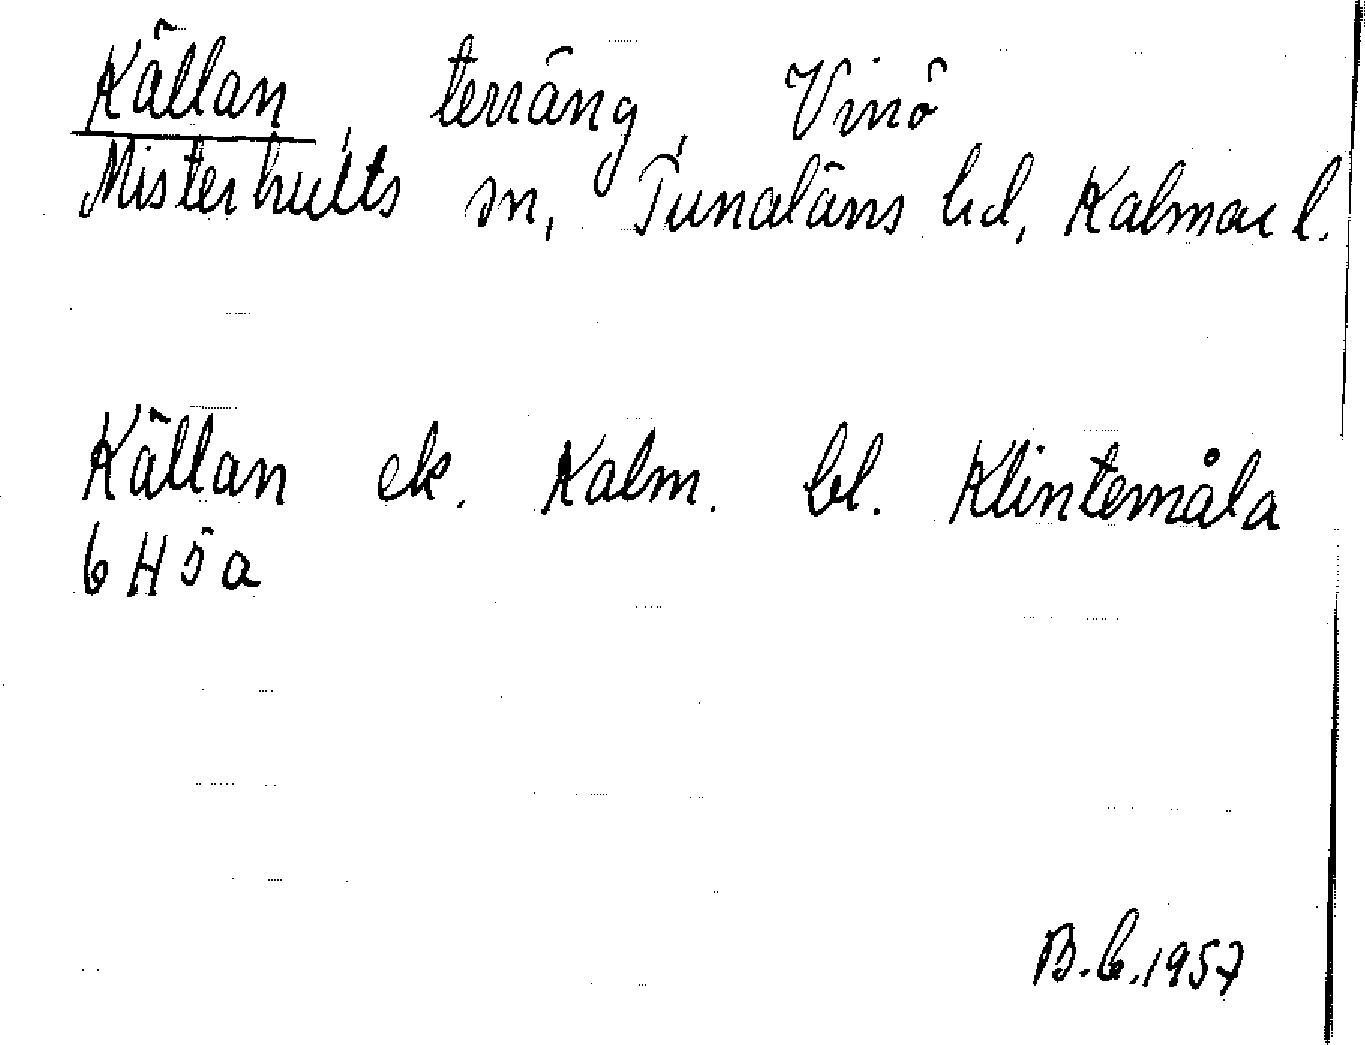 Källan, terräng, Vinö
Misterhults sn, Tunaläns hd, Kalmar l.
Källan ek. Kalm. bl. Klintemåla
6H5a
B.G.1957